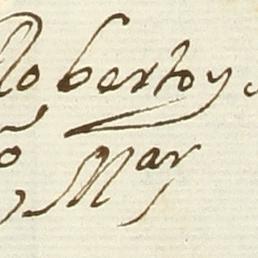 Roberto y
õ Mar